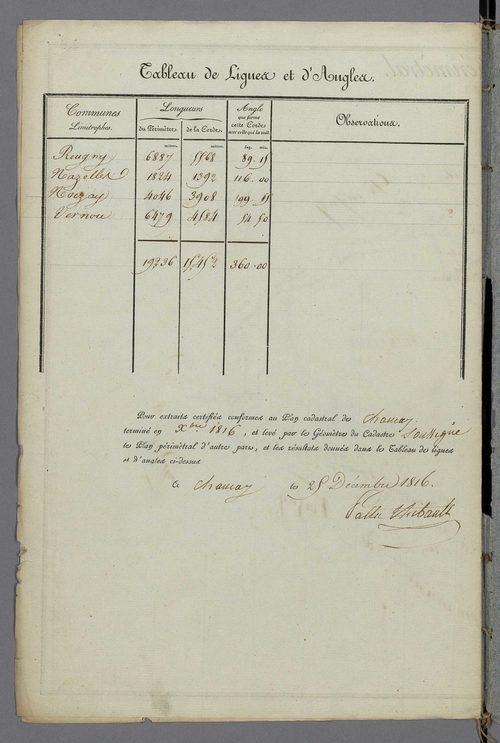 Tableau de Lignes et d'Angles.
Communes Limitrophes. | Longueurs du Périmètre | Longueurs de la Corde | Angle que forme cette Corde avec celle qui la suit. | Observations.
mètres. mètres. deg. min.
Reugny 6887 5568 89.15
Nazelles 1824 1392 116.00
Noizay 4046 3908 99.55
Vernou 6479 4584 54.50
19236 15452 360.00
Pour extraits certifiés conformes au Plan cadastral de Chançay
terminé en Xbre 1816, et levé par le Géomètre du Cadastre soussigné
le Plan périmétral d'autre part, et les résultats donnés dans le Tableau de lignes
et d'angles ci-dessus
à Chançay le 25 Décembre 1816.
Thibault